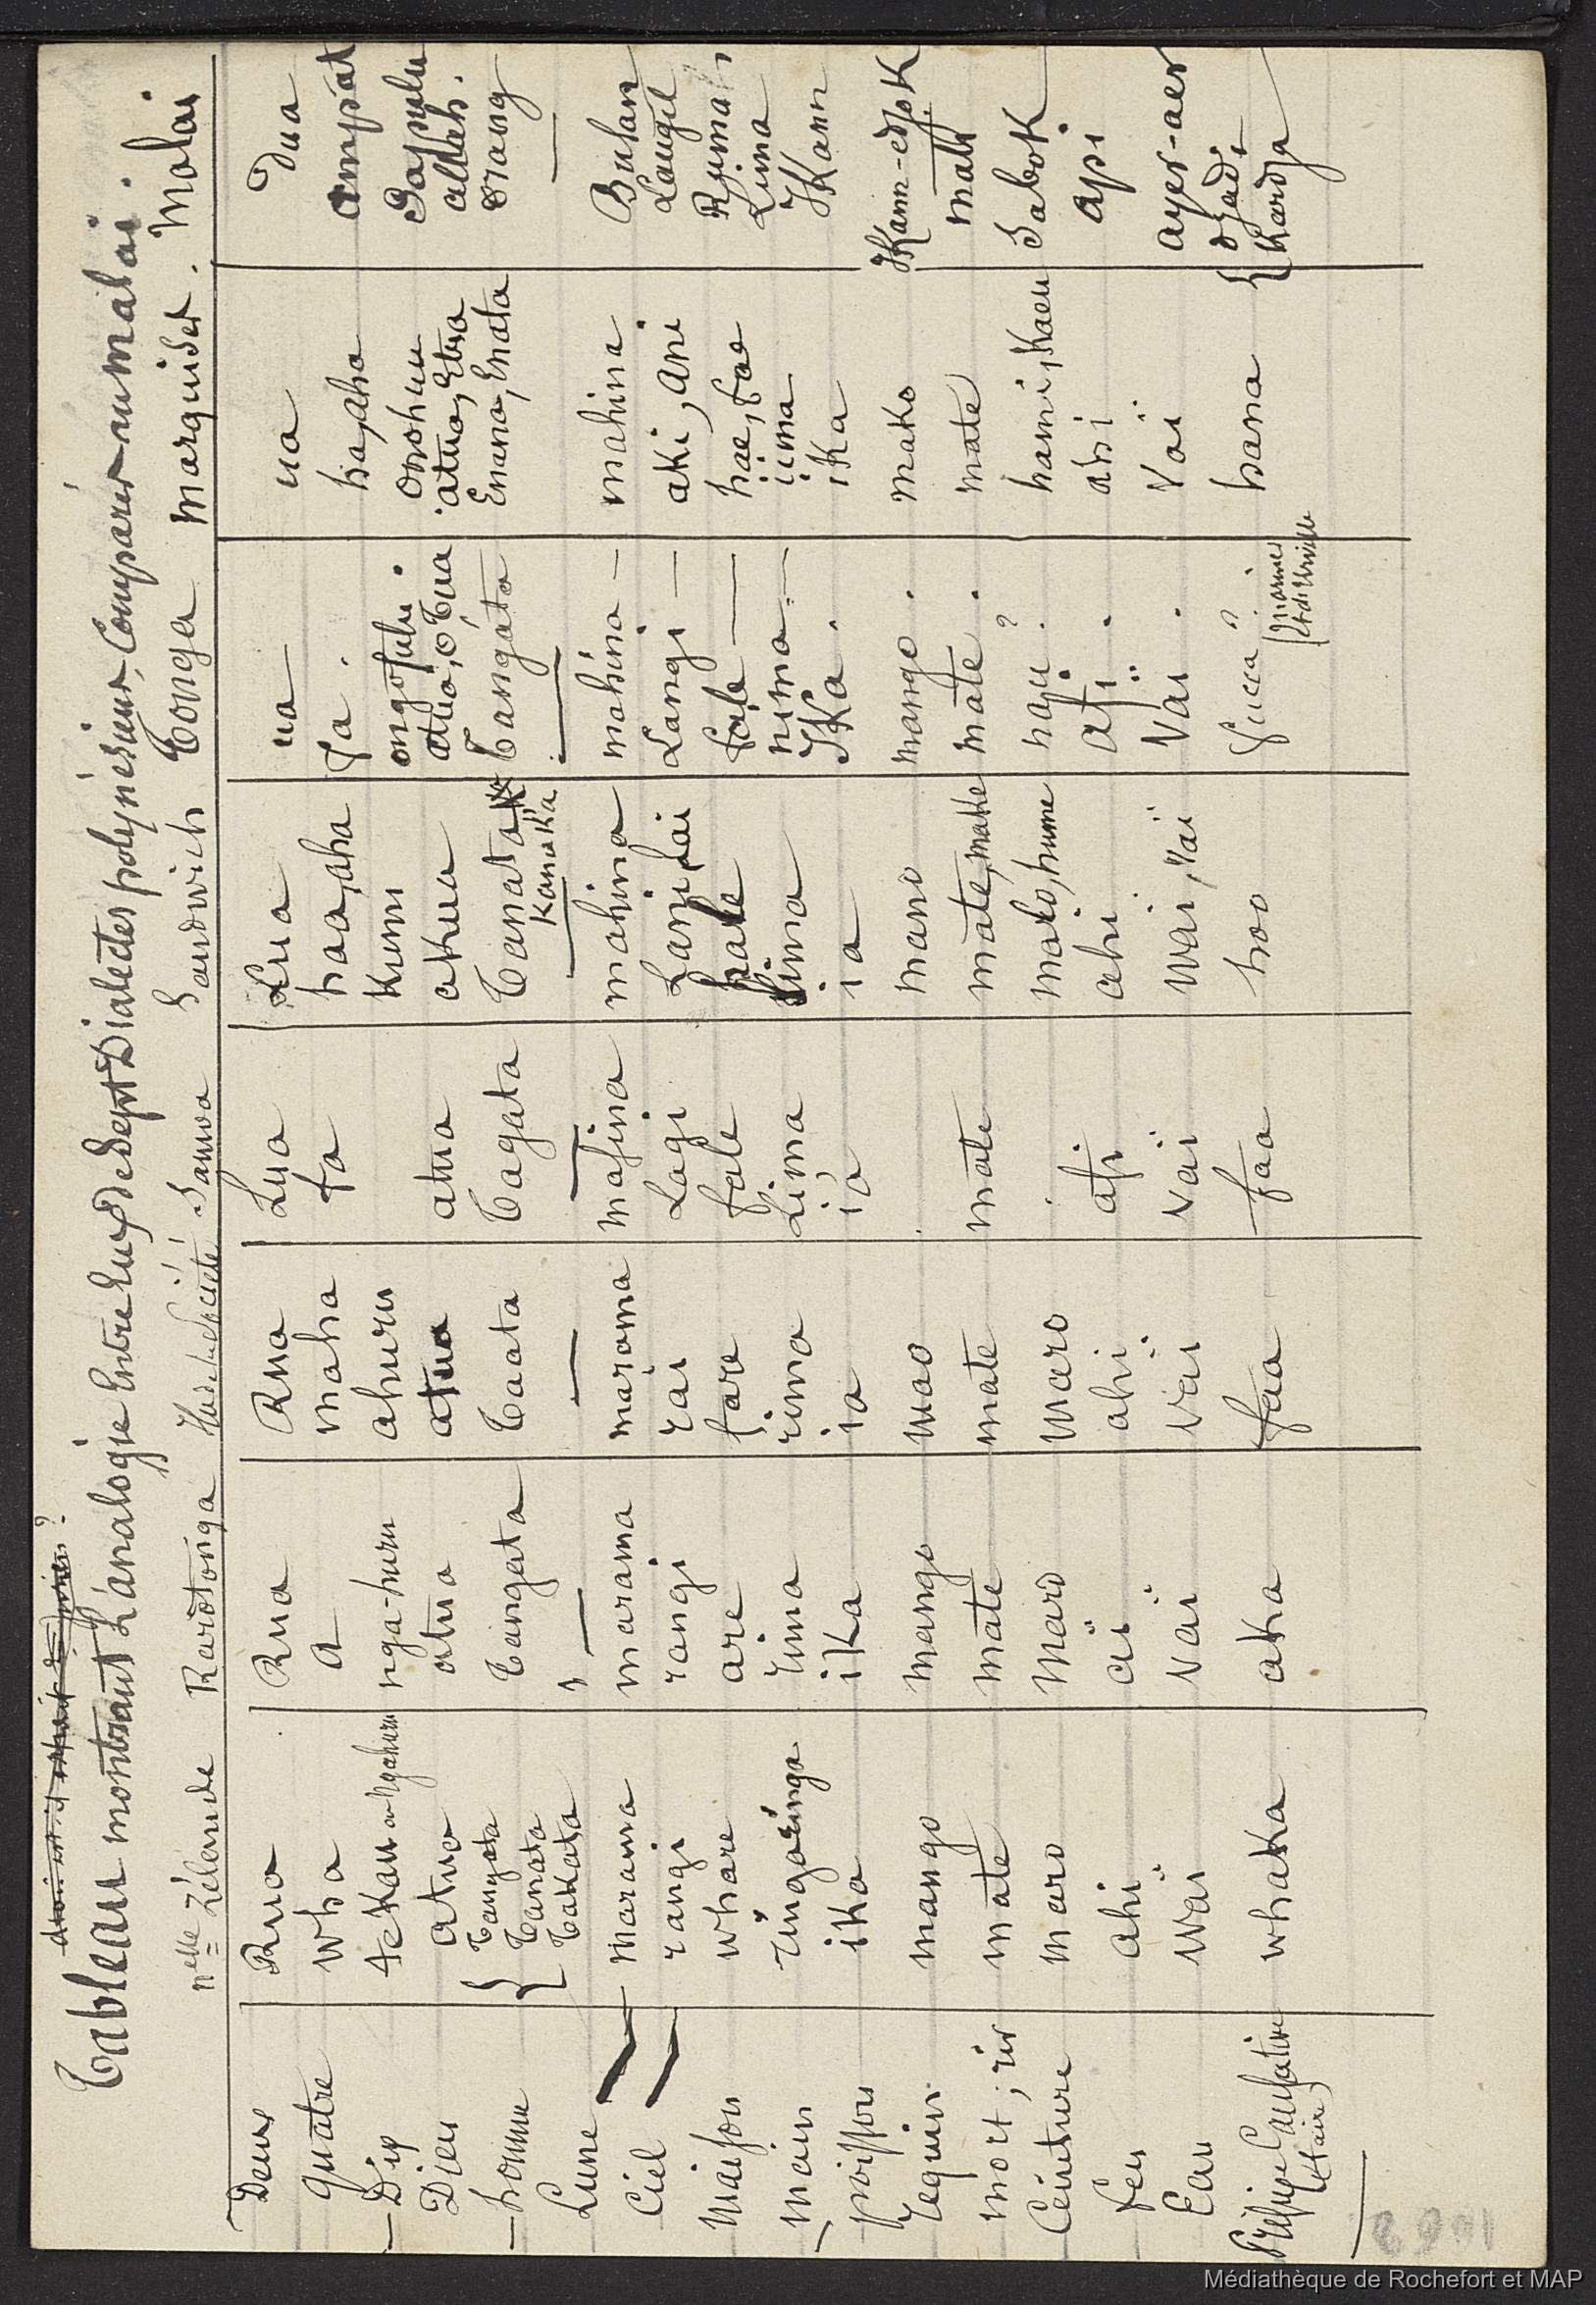 Tableau montrant L'analogie Entre Eux de Sept Dialectes polynésiens, Comparés au malai.
nelle Zélande Rarotonga Iles de la Société Samoa Sandwich Tonga marquises. Malai
Deux Rua Rua Rua Lua Lua ua ua dua
quatre Wha a maha fa haa, aha Fa. ha, aha ampat
Dix tekau ou ngahuru nga-huru ahuru Kumi ongofulu. onohuu Sapulu
Dieu atua atua atua atua akua atua, otua atua, Etua allah.
homme { Tangata Tanata Takata Tangata Taata Tagata Tanata Kanaka Tangata Enana, Enata orang
Lune marama marama marama mafina mahina mahina — mahina Bulan
Ciel rangi rangi rai Lagi Lani, Lai Langi — aki, ani Languit
Maison whare are fare fale hale fale — hae, fae Rumah
main ringaringa rima rima Lima lima nima — iima Lima
poisson ika ika ia ia ia Ika. ika Ikann
requin mango mango mao mano mango. mako Ikann-edjok
mort; rir mate mate mate mate mate, make mate. mate mati
Ceinture maro maro maro malo, hume hami, Kaeu Sabok
feu ahi ai ahi afi ahi afi. ahi api
Eau Wai Vai Vai Vai Wai, Vai Vai. Vai ayer-aer
Préfixe Causative (faire) whaka aka faa faa hoo hana { djadi Kardja
(Mariner et d'Urville
Médiathèque de Rochefort et MAP